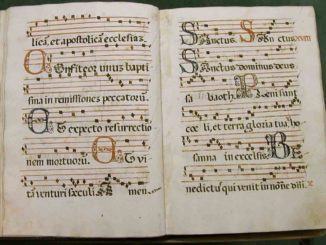 lica, et apostolica ecclesia.
Confiteor unus bapti
sma in remissiones peccatorū
& expecto resurrectio
nem mortuorū. Et vi
tam venturi sæculi men.
Sanctus. Sanctus
Sanctus dominus deus
sabaoth. Pleni sunt
coe li, et terra gloria tua ho
sanna in excelsis. Be
nedictus qui venit in noīe dñi.